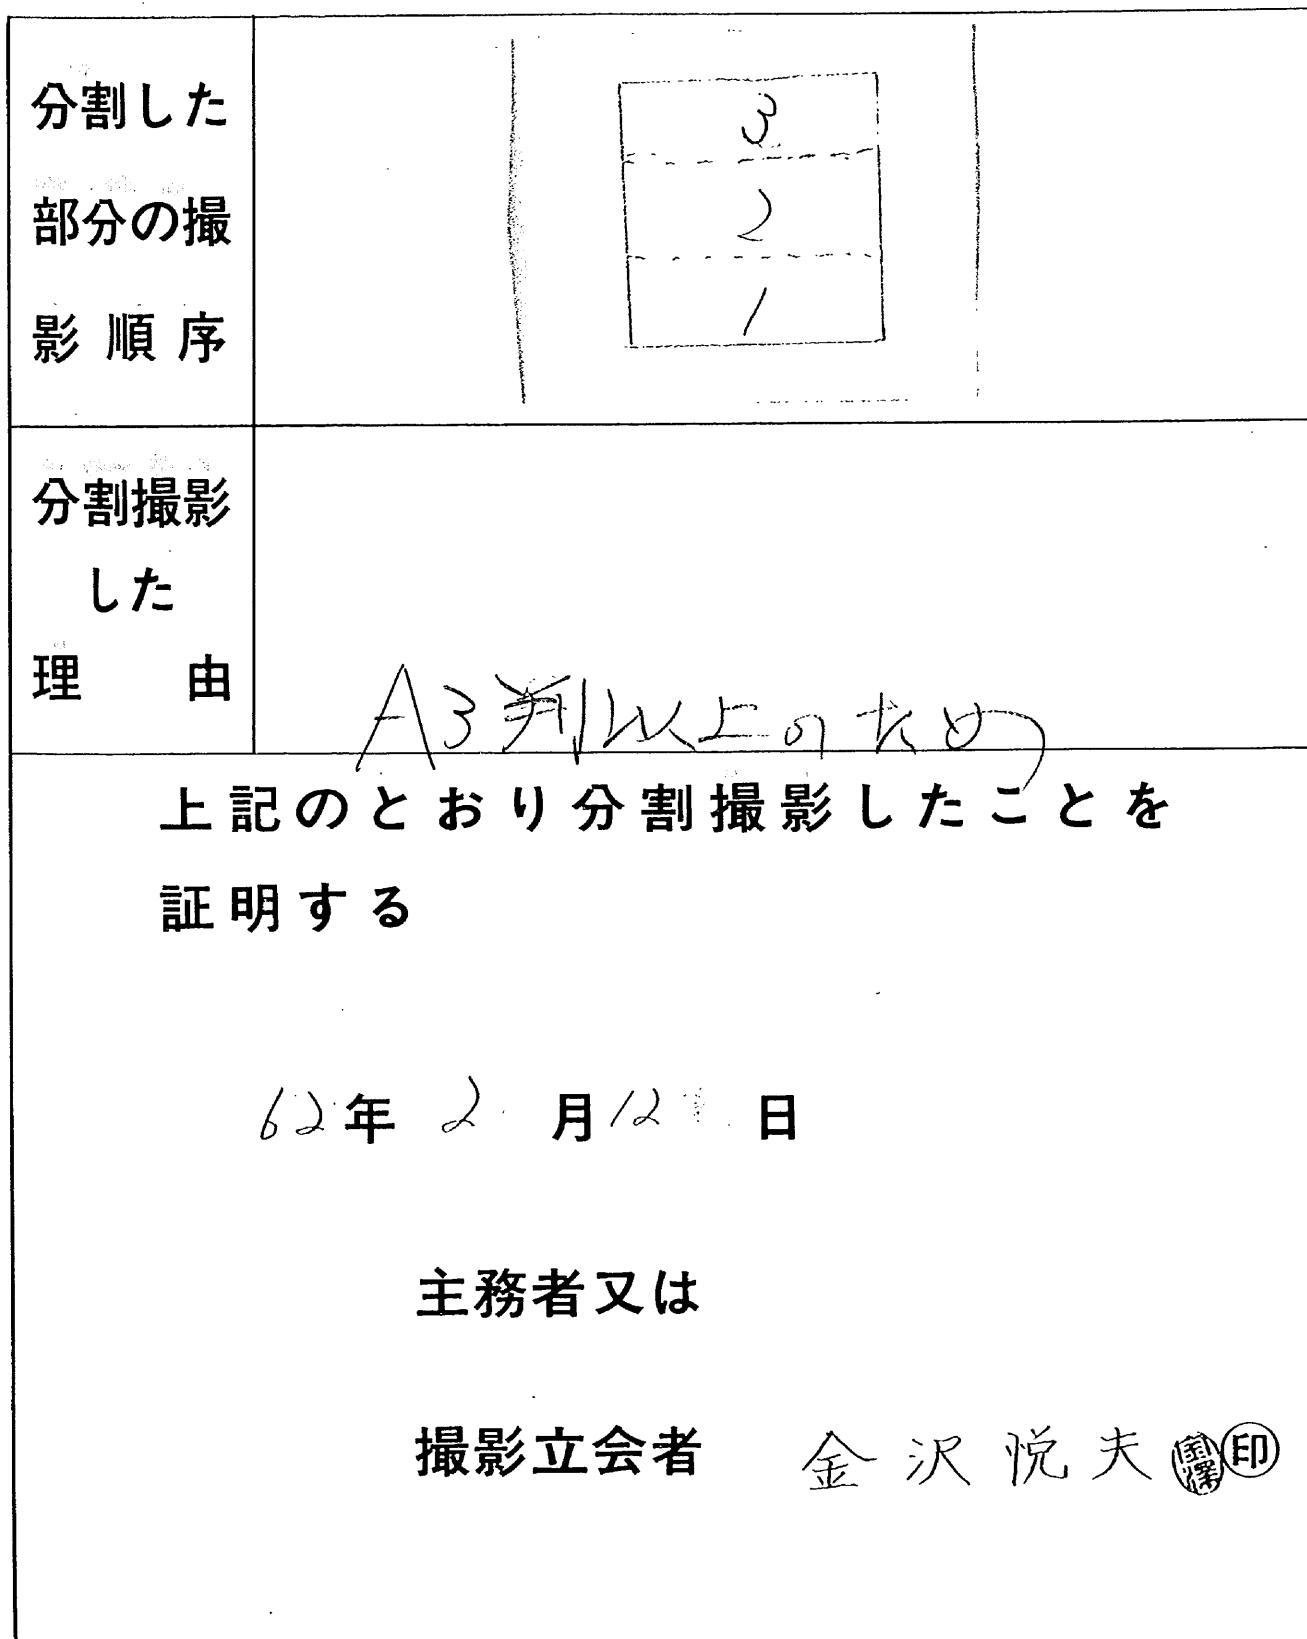 分割した
部分の撮
影順序
3
2
1
分割撮影
した
理由
A3判以上のため
上記のとおり分割撮影したことを
証明する
62年 2月12日
主務者又は
撮影立会者 金沢悦夫 金澤 印